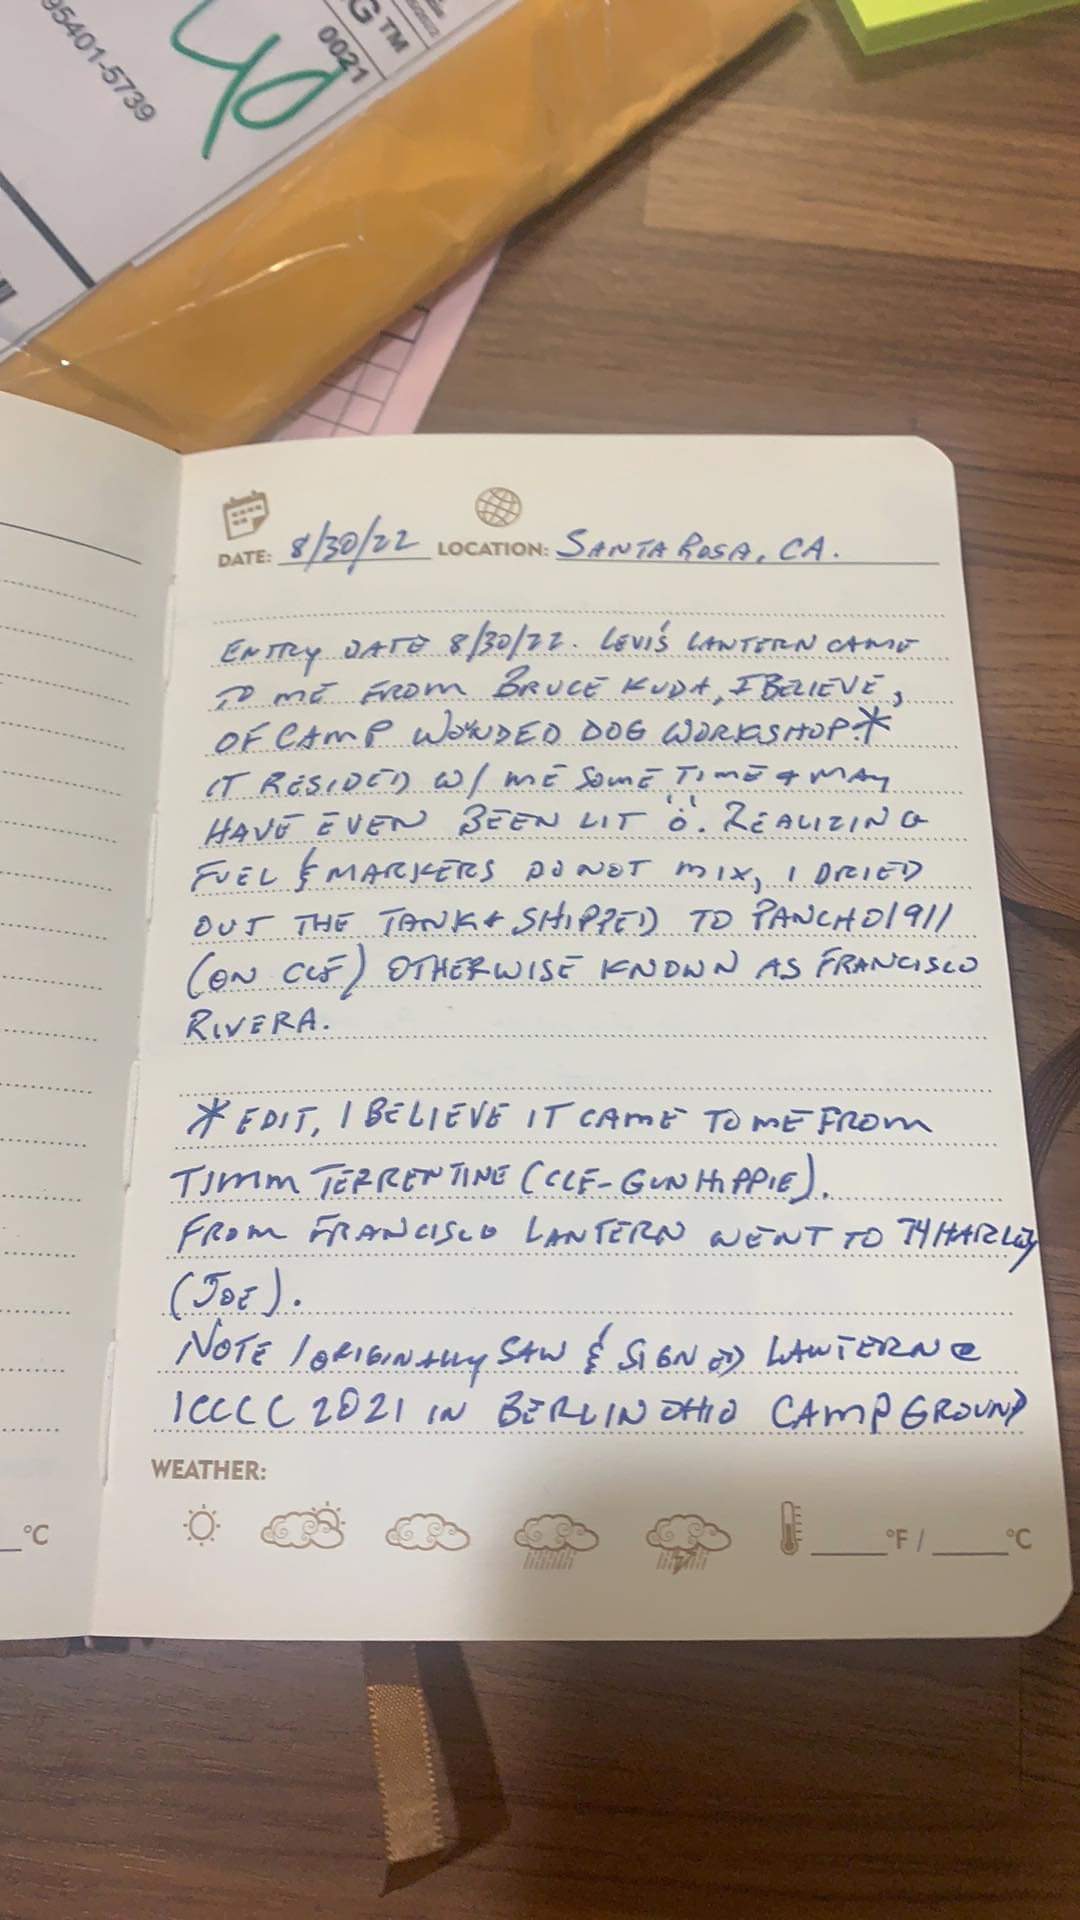 95401-5739
0021
G™
DATE: 8/30/22 LOCATION: SANTA ROSA, CA.
ENTRY DATE 8/30/22. LEVI'S LANTERN CAME
TO ME FROM BRUCE KUDA, I BELIEVE,
OF CAMP WOUNDED DOG WORKSHOP.*
IT RESIDED W/ ME SOME TIME & MAY
HAVE EVEN BEEN LIT ö. REALIZING
FUEL & MARKERS DO NOT MIX, I DRIED
OUT THE TANK & SHIPPED TO PANCHO1911
(ON CCF) OTHERWISE KNOWN AS FRANCISCO
RIVERA.
* EDIT, I BELIEVE IT CAME TO ME FROM
TIMM TERRENTINE (CCF-GUNHIPPIE).
FROM FRANCISCO LANTERN WENT TO 74HARLEY
(JOE).
NOTE I ORIGINALLY SAW & SIGNED LANTERN @
ICCCC 2021 IN BERLIN OHIO CAMPGROUND
WEATHER:
°C
°F / °C